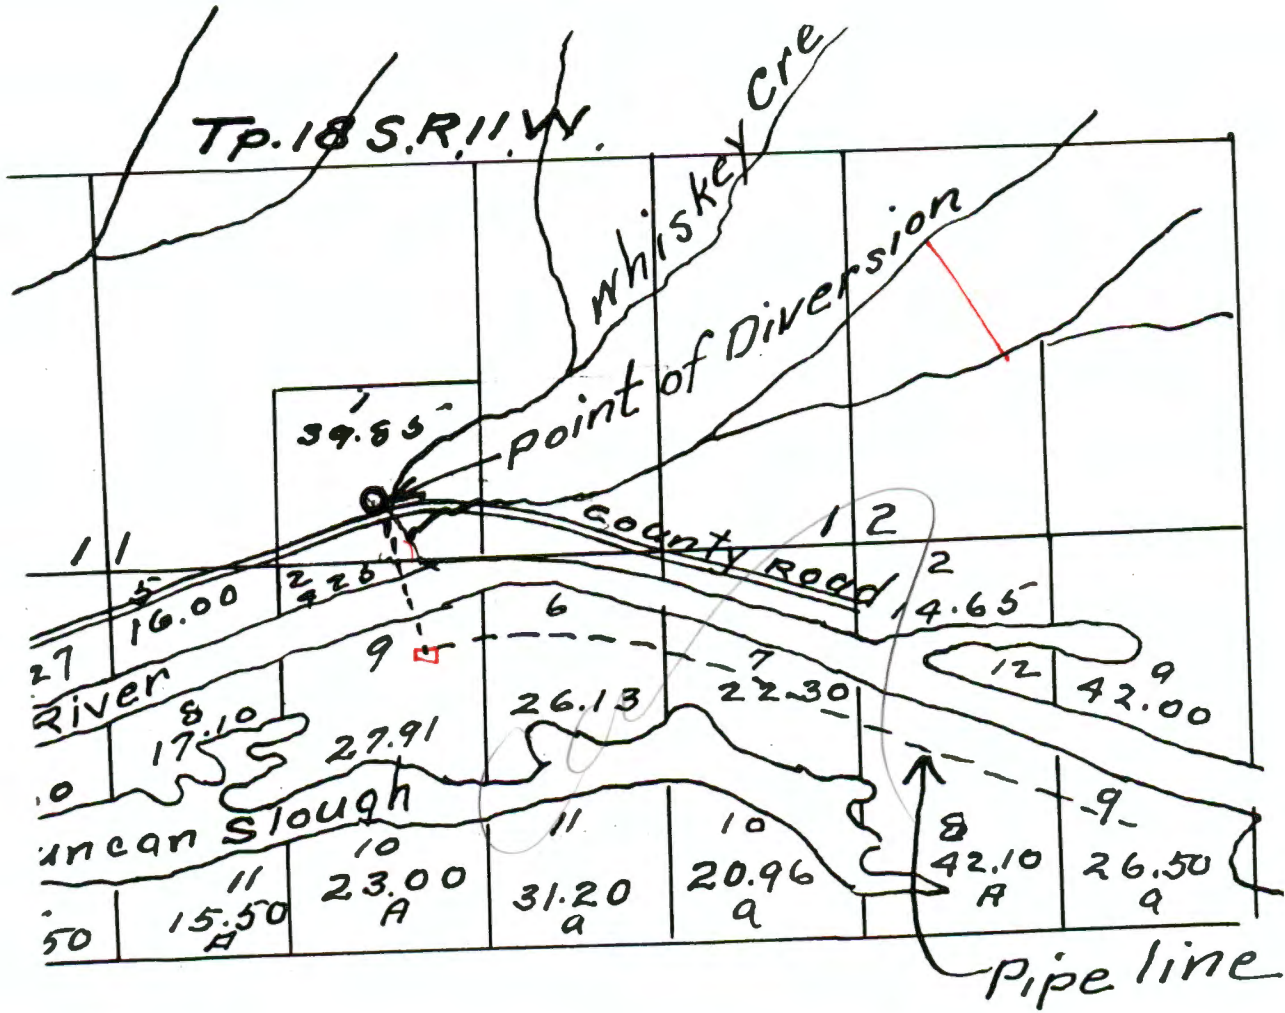 Tp. 18 S. R. 11. W.
Whiskey Cre
Point of Diversion
1
39.85
County Road
11
12
5
16.00
2
4.25
2
14.65
27
River
9
6
7
22.30
12
9
42.00
8
17.10
27.91
26.13
.0
uncan Slough
11
15.50
A
10
23.00
A
11
31.20
a
10
20.96
a
8
42.10
A
9
26.50
a
50
Pipe line